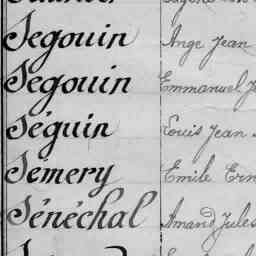 Segouin Ange Jean
Segouin Emmanuel J
Séguin Louis Jean
Sémery Emile Ern
Sénéchal Amand Jules